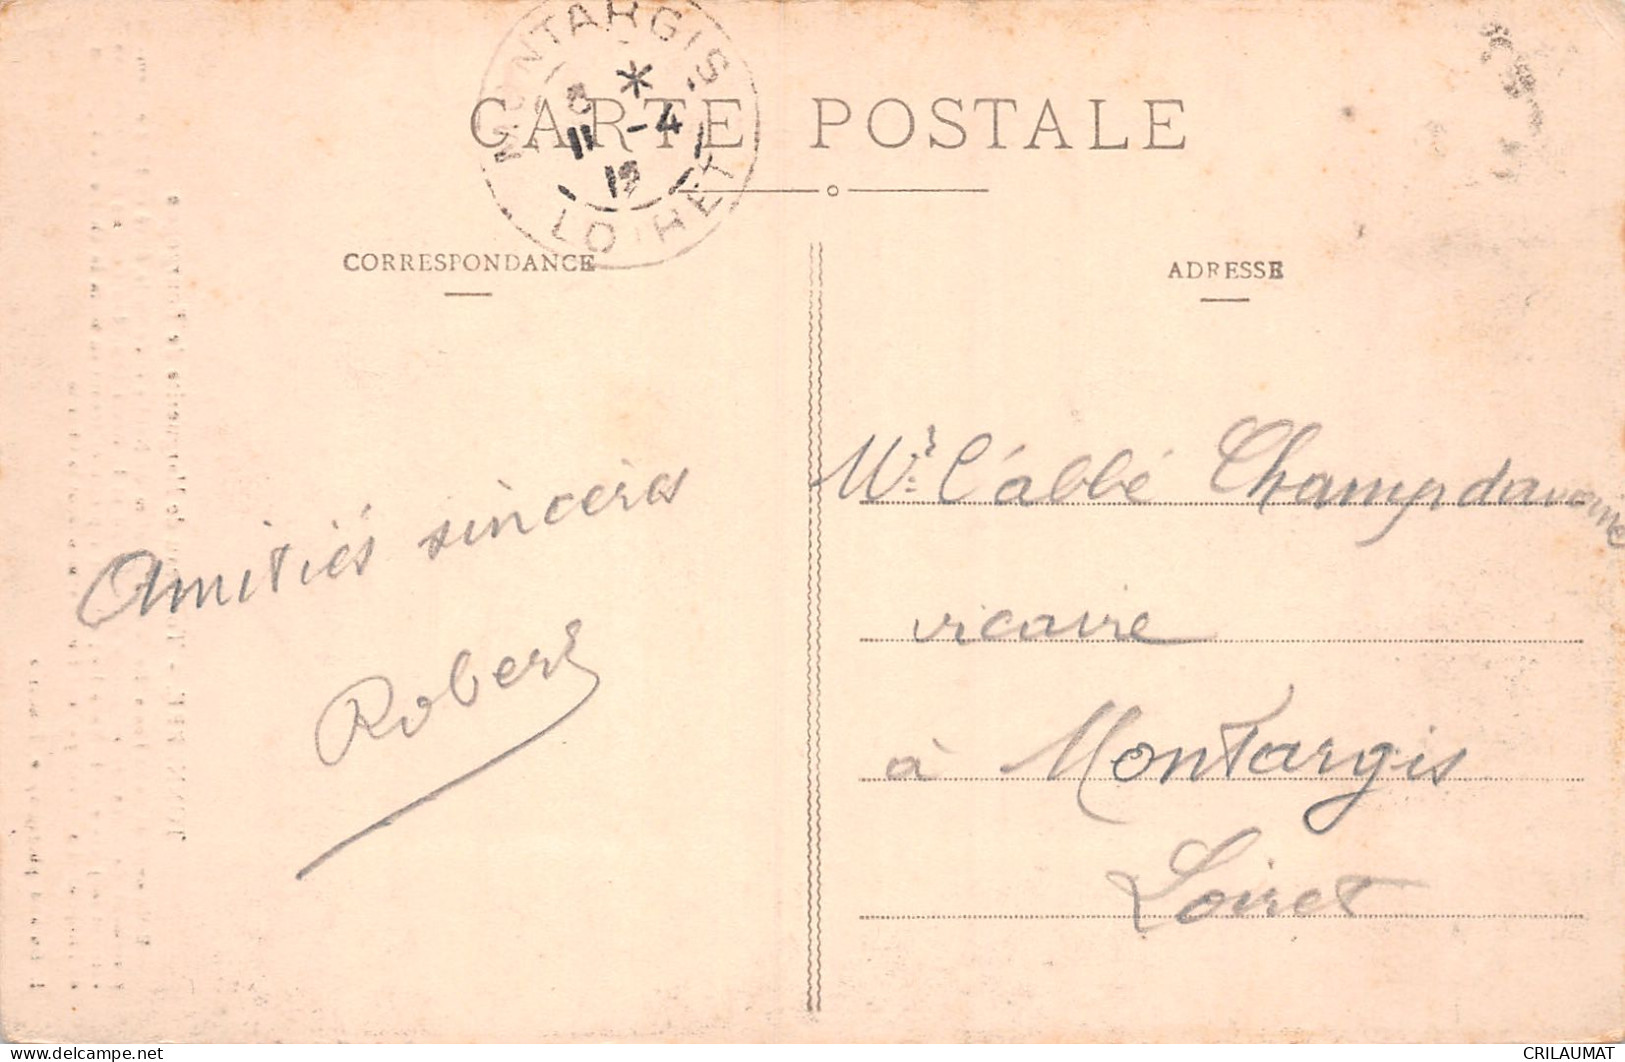 MONTARGIS
*
11 -4
12
LOIRET
CARTE POSTALE
CORRESPONDANCE
ADRESSE
Amitiés sincères
Robert
Mr l'abbé Champdavoine
vicaire
à Montargis
Loiret
www.delcampe.net
CRILAUMAT